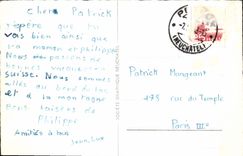 Chers Patrick
j'espère que tu
vas bien ainsi que
ta maman et philippe
Nous passons de
bonnes vacances en
suisse. Nous sommes
allés au bord du lac
et à la montagne
Gros baisers de
Philippe
Amitiés à tous
SOCIÉTÉ GRAPHIQUE NEUCHATEL
(NEUCHÂTEL)
Patrick Mangeant
179 rue du Temple
Paris IIIe